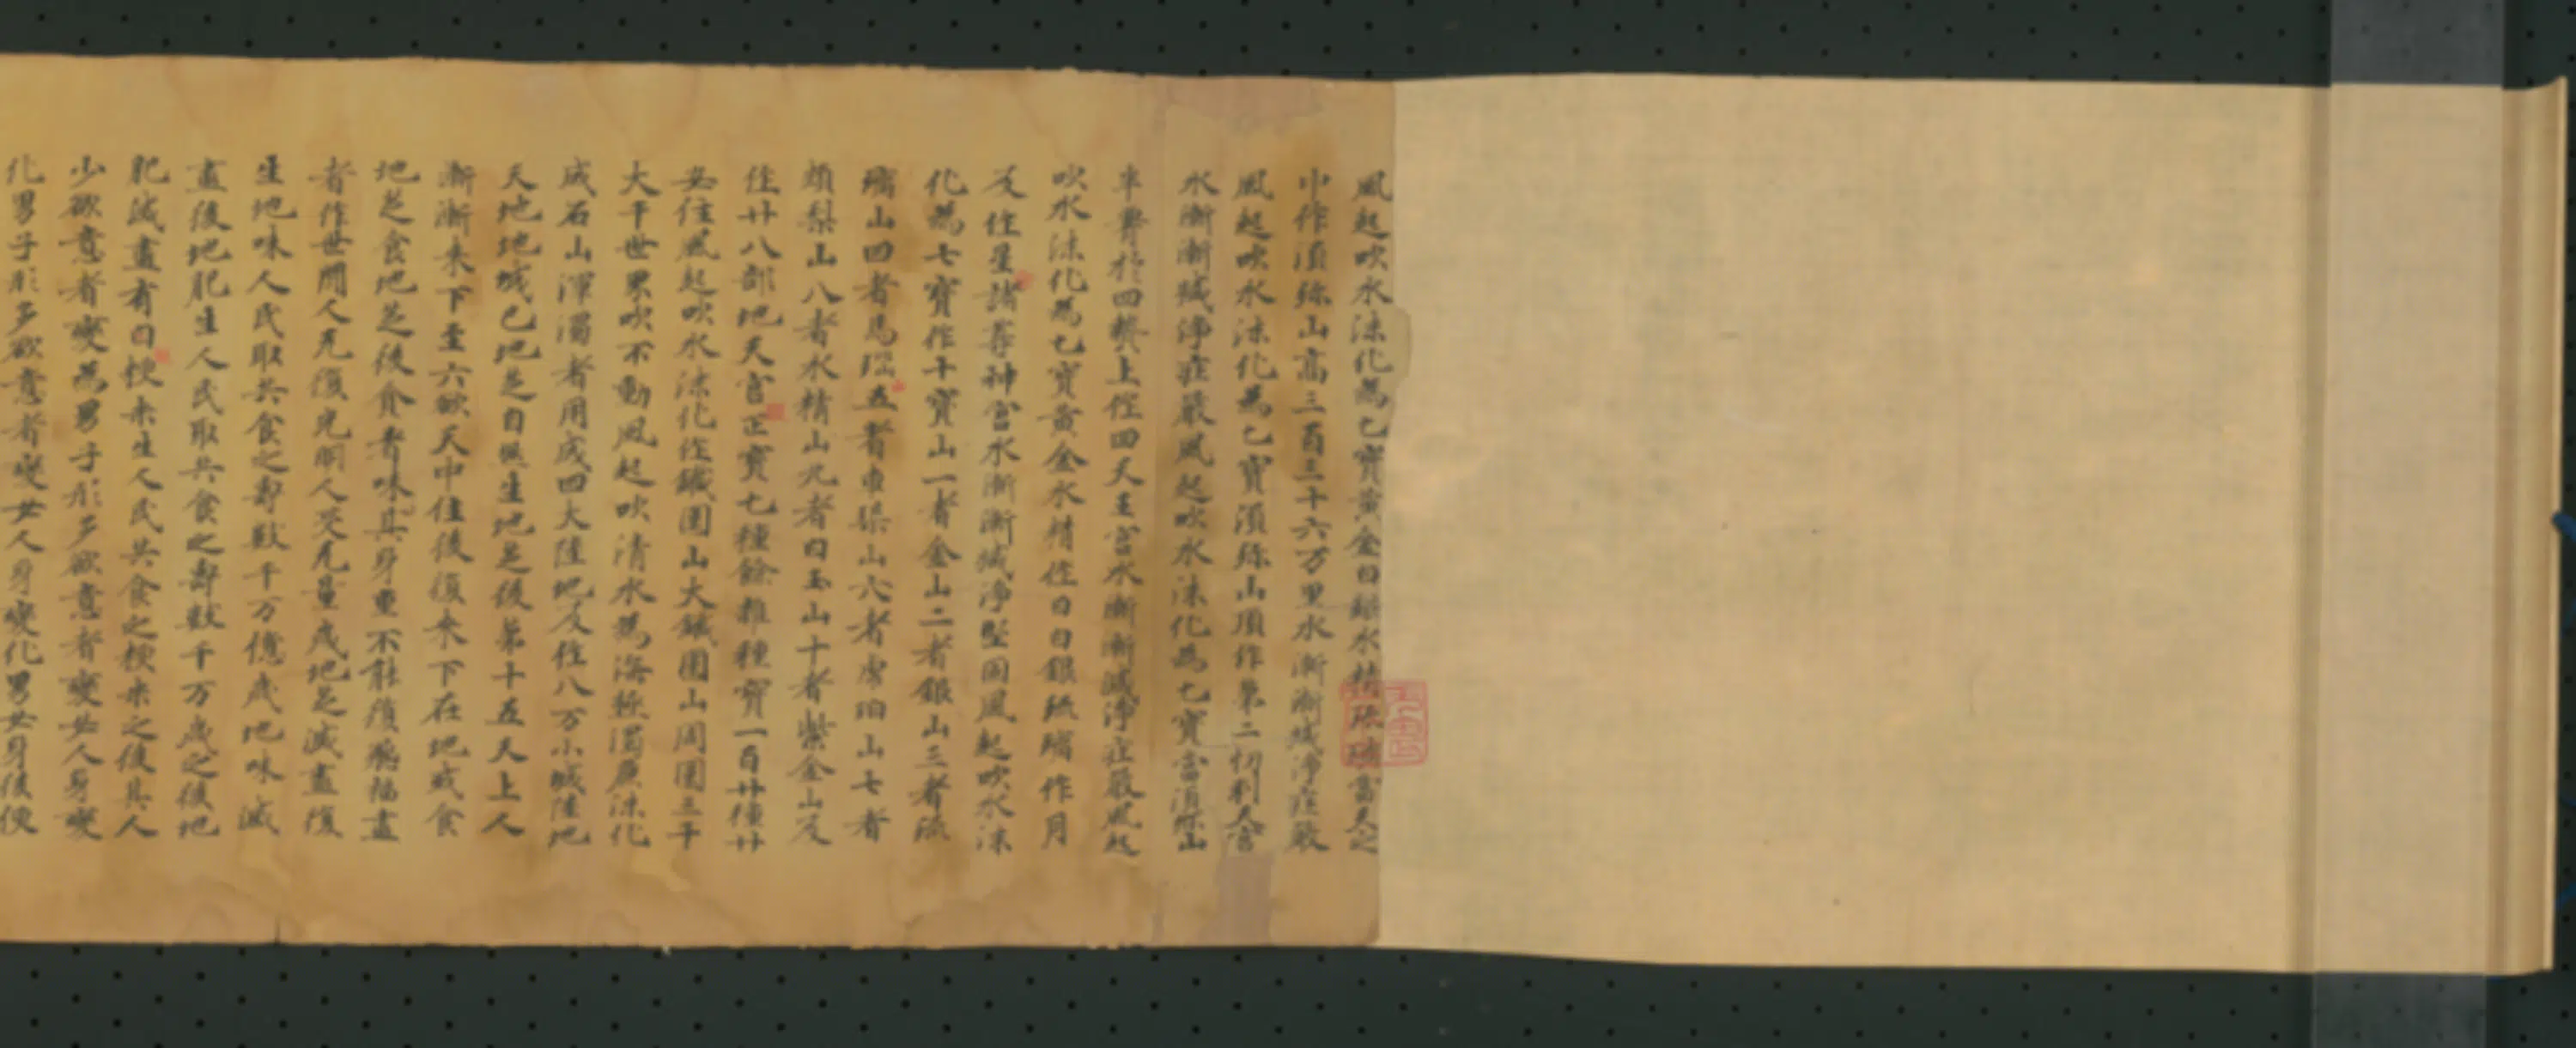 風起吹水沫化為七寶黃金白銀水精琉璃當天之
中作湏弥山高三百三十六万里水漸漸減淨疰嚴
風起吹水沫化為七寶湏弥山頂作第二忉利天宮
水漸漸減淨疰嚴風起吹水沫化為七寶當湏弥山
半斉於四㨷上作四天王宮水漸漸減淨疰嚴風起
吹水沫化為七寶黃金水精作日白銀琉璃作月
及作星諸尊神宮水漸漸減淨堅固風起吹水沫
化為七寶作十寶山一者金山二者銀山三者琉
璃山四者馬瑙五者車渠山六者虎珀山七者
頗梨山八者水精山九者白玉山十者紫金山及
作廿八部地天宮正寶七種餘雜種寶一百廿種廿
安住風起吹水沫化作鐵圍山大鐵圍山周圍三千
大千世界吹不動風起吹清水為海鉢濁痕沫化
成石山渾濁者用成四大陸地及作八万小城陸地
天地地成已地芝自然生地芝後第十五天上人
漸漸來下至六欲天中住後復來下在地或食
地芝食地芝後食者味其身重不能復飛福盡
者作世間人无復光明人受无量歲地芝滅盡復
生地味人民取共食之壽數千万億歲地味滅
盡後地肥生人民取共食之壽數千万歲之後地
肥滅盡有曰粳米生人民共食之粳米之後其人
少欲意者變為男子形多欲意者變女人身變
化男子形多欲意者變女人身變化男女身後便